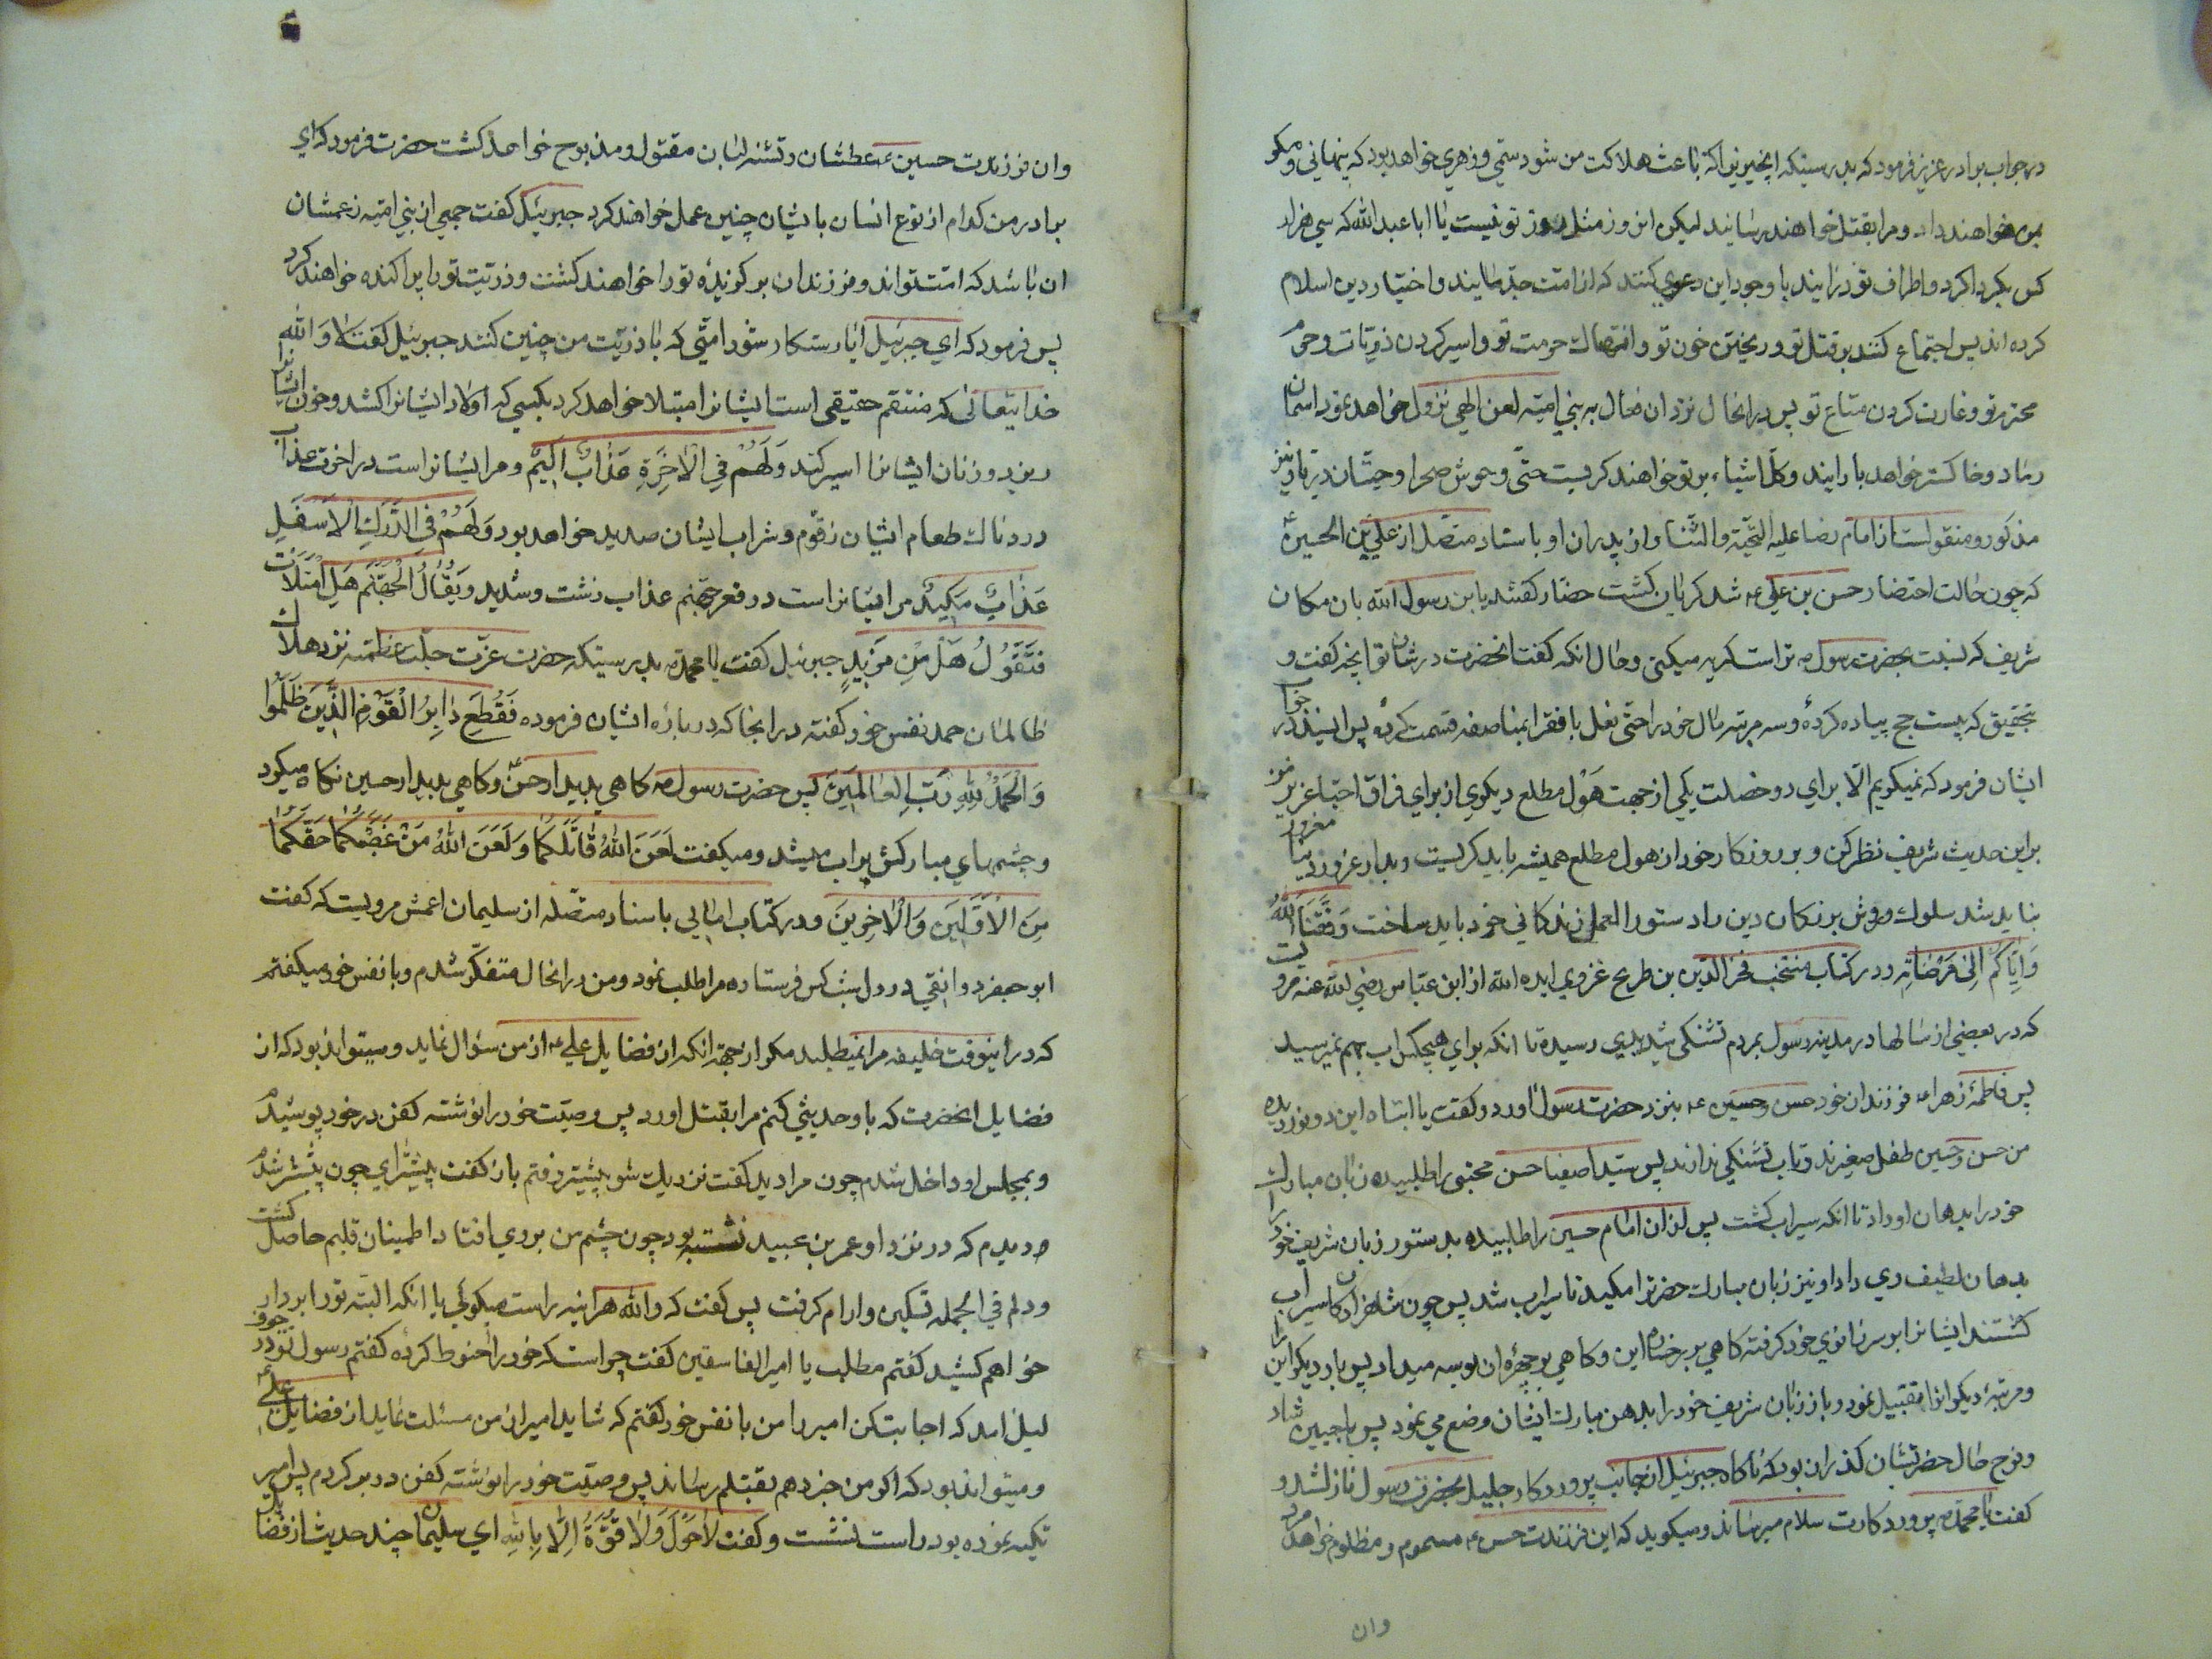 در جواب برادر عزیز فرمود که بدرستیکه انچیزیرا که باعث هلاکت من شود ستمی و زهری خواهد بود که پنهانی و مکر
بمن خواهند داد و مرا بقتل خواهند رسانید لیکن این روز مثل روز تو نیست یا ابا عبد الله که سی هزار
کس بکرداکرد و اطراف تو درایند با وجود این دعوی کنند که از امت جد مایند و اختیار دین اسلام
کرده اند پس اجتماع کنند بر قتل تو و ریختن خون تو و انتهاك حرمت تو و اسیر کردن ذریات و حرم
محترم تو و غارت کردن متاع تو پس در انحال نزد ان فعال به بنی امیه لعن الهی نزول خواهد نمود اسمان
رماد و خاکستر خواهد بارانید و کل اشیاء بر تو خواهند کریست حتی وحوش صحرا و حیتان دریا و نیز
مذکور و منقولست از امام رضا علیه التحیة والثنا و از پدران او باسناد متصل از علی بن الحسین ع
که چون حالت احتضار حسن بن علی ع شد کریان کشت حضار کفتند یابن رسول الله بان مکان
شریف که نسبت بحضرت رسول ص تراست کریه میکنی و حال انکه کفت انحضرت در شان تو انچه کفت و
بتحقیق که بیست حج پیاده کردهٔ و سه مرتبه مال خود را حتی نعل با فقرا بمناصفه قسمت کردهٔ پس انسید در جواب
ایشان فرمود که نمیکریم الا برای دو خصلت یکی از جهت هول مطلع دیکری از برای فراق احبا عزیز من
براین حدیث شریف نظر کن و بر روزکار خود از هول مطلع همیشه باید کریست و بدار غرور دنیا مغرور
نباید شد سلوك و روش بزرکان دین را دستور العمل زندکانی خود باید ساخت وَفَّقَنَا اللّٰهُ
وَاِیّاکُمْ اِلیٰ مَرْضَاتِهِ و در کتاب منتخب فخر الدین بن طریح غروی ایده الله از ابن عباس رضی الله عنه مرویست
که در بعضی از سالها در مدینه رسول بمردم تشنکی شدیدی رسیده تا انکه برای هیچکس اب بهم نمیرسید
پس فاطمهٔ زهرا ع فرزندان خود حسن و حسین ع بنزد حضرت رسول اورد و کفت یا ابتاه این دو نور دیده
من حسن و حسین طفل صغیرند و تاب تشنکی ندارند پس سید اصفیا حسن مجتبی را طلبیده زبان مبارك
خود را بدهان او داد تا انکه سیراب کشت پس از ان امام حسین را طلبیده بدستور زبان شریف خود را
بدهان لطیف وی داد او نیز زبان مبارك حضرترا مکید تا سیراب شد پس چون شاهزادکان سیراب
کشتند ایشانرا بر سر زانوی خود کرفته کاهی بر رخساره این و کاهی بر چهره ان بوسه میداد پس بار دیکر این را
و مرتبهٔ دیکر انرا تقبیل نمود و باز زبان شریف خود را بدهن مبارك ایشان وضع می نمود پس با جبین شاد
و فرح حال حضرتشان کذران بود که ناکاه جبرئیل از جانب پروردکار جلیل بحضرت رسول نازل شد و
کفت یا محمد ص پروردکارت سلام میرساند و میکوید که این فرزندت حسن ع مسموم و مظلوم خواهد مرد
وان
وان فرزندت حسین ع عطشان و تشنه لبان مقتول و مذبوح خواهد کشت حضرت فرمود که ای
برادر من کدام از نوع انسان بایشان چنین عمل خواهند کرد جبرئیل کفت جمعی از بنی امیه زعمشان
ان باشد که امت تواند و فرزندان برکزیدهٔ تو را خواهند کشت و ذریت تو را پراکنده خواهند کرد
پس فرمود که ای جبرئیل ایا رستکار شود امتی که با ذریت من چنین کنند جبرئیل کفت لا وَاللّٰهِ
خدایتعالی که منتقم حقیقی است ایشانرا مبتلا خواهد کرد بکسی که اولاد ایشانرا کشد و خون ایشانرا
ریزد و زنان ایشانرا اسیر کند وَلَهُمْ فِي الْاٰخِرَةِ عَذَابٌ اَلیمٌ و مر ایشانراست در اخرت عذاب
دردناك طعام ایشان زقوم و شراب ایشان صدید خواهد بود وَلَهُمْ فِی الدَّرَكِ الْاَسْفَلِ
عَذَابٌ مر ایشانراست در قعر جهنم عذاب زشت و شدید وَیُقٰالُ لِجَهَنَّمَ هَلِ امْتَلَأْتِ
فَتَقُولُ هَلْ مِنْ مَزیدٍ جبرئیل کفت یا محمد ص بدرستیکه حضرت عزت جلت عظمته نزد هلاك
ظالمان حمد نفس خود کفته در انجا که در بارهٔ ایشان فرموده فَقُطِعَ دٰابِرُ الْقَوْمِ الَّذینَ ظَلَمُوا
وَالْحَمْدُ لِلّٰهِ رَبِّ الْعٰالَمینَ پس حضرت رسول ص کاهی بدیدار حسن و کاهی بدیدار حسین نکاه میکرد
و چشمهای مبارکش پر اب میشد و میکفت لَعَنَ اللّٰهُ قٰاتِلَکُمٰا وَلَعَنَ اللّٰهُ مَنْ غَصَبَکُمٰا حَقَّکُمٰا
مِنَ الْاَوَّلینَ وَالْاٰخِرینَ و در کتاب امالی باسناد متصله از سلیمان اعمش مرویست که کفت
ابو جعفر دوانقی در دل شب کس فرستاده مرا طلب نمود و من در انحال متفکر شدم و با نفس خود میکفتم
که در اینوقت خلیفه مرا نمیطلبد مکر از جهة انکه از فضایل علی ع از من سؤال نماید و میتواند بود که از
فضایل انحضرت که با و حدیثی کنم مرا بقتل اورد پس وصیت خود را نوشته کفن در خود پوشیدم
و بمجلس او داخل شدم چون مرا دید کفت نزدیك شو پیشتر رفتم باز کفت پیشتر ای چون پیشتر شدم
دیدم که در نزد او عمر بن عبید نشسته بود چون چشم من بروی افتاد اطمینان قلبم حاصل کشت
و دلم فی الجمله تسکین و ارام کرفت پس کفت که والله هراینه راست میکوئی یا انکه البته تو را بردار
خواهم کشید کفتم مطلب یا امیر الفاسقین کفت چراست که خود را حنوط کردهٔ کفتم رسول تو در جوف
لیل امد که اجابت کن امیر را من با نفس خود کفتم که شاید امیر از من مسئلت نماید از فضایل علی ع
و میتواند بود که اکر من خبر دهم بقتلم رساند پس وصیت خود را نوشته کفن در بر کردم پس امیر
تکیه نموده بود راست نشست و کفت لٰا حَوْلَ وَلٰا قُوَّةَ اِلّٰا بِاللّٰهِ ای سلیمان چند حدیث از فضایل